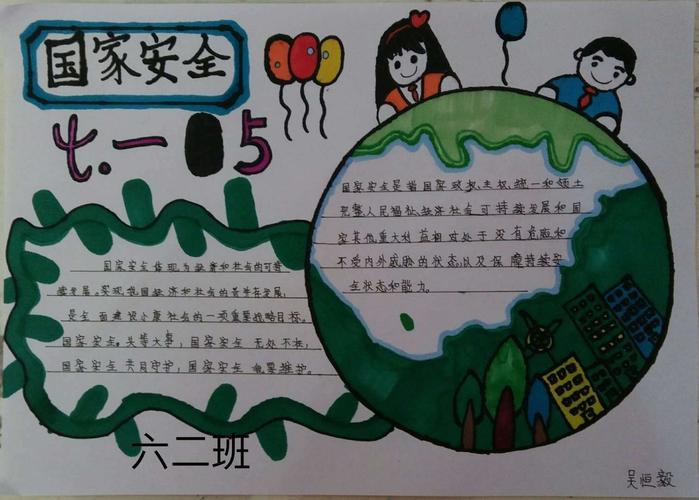 国家安全
4.一 5
国家安全是指国家政权、主权、统一和领土
完整人民福祉、经济社会可持续发展和国
家其他重大利益相对处于没有危险和
不受内外威胁的状态,以及保障持续安
全状态和能力。
国家安全体现为经济和社会的可持
续发展。实现我国经济和社会的发展,
是全面建设小康社会的一项重要战略目标。
国家安全。头等大事;国家安全 无处不在;
国家安全 共同守护;国家安全 维护。
六二班
吴恒毅